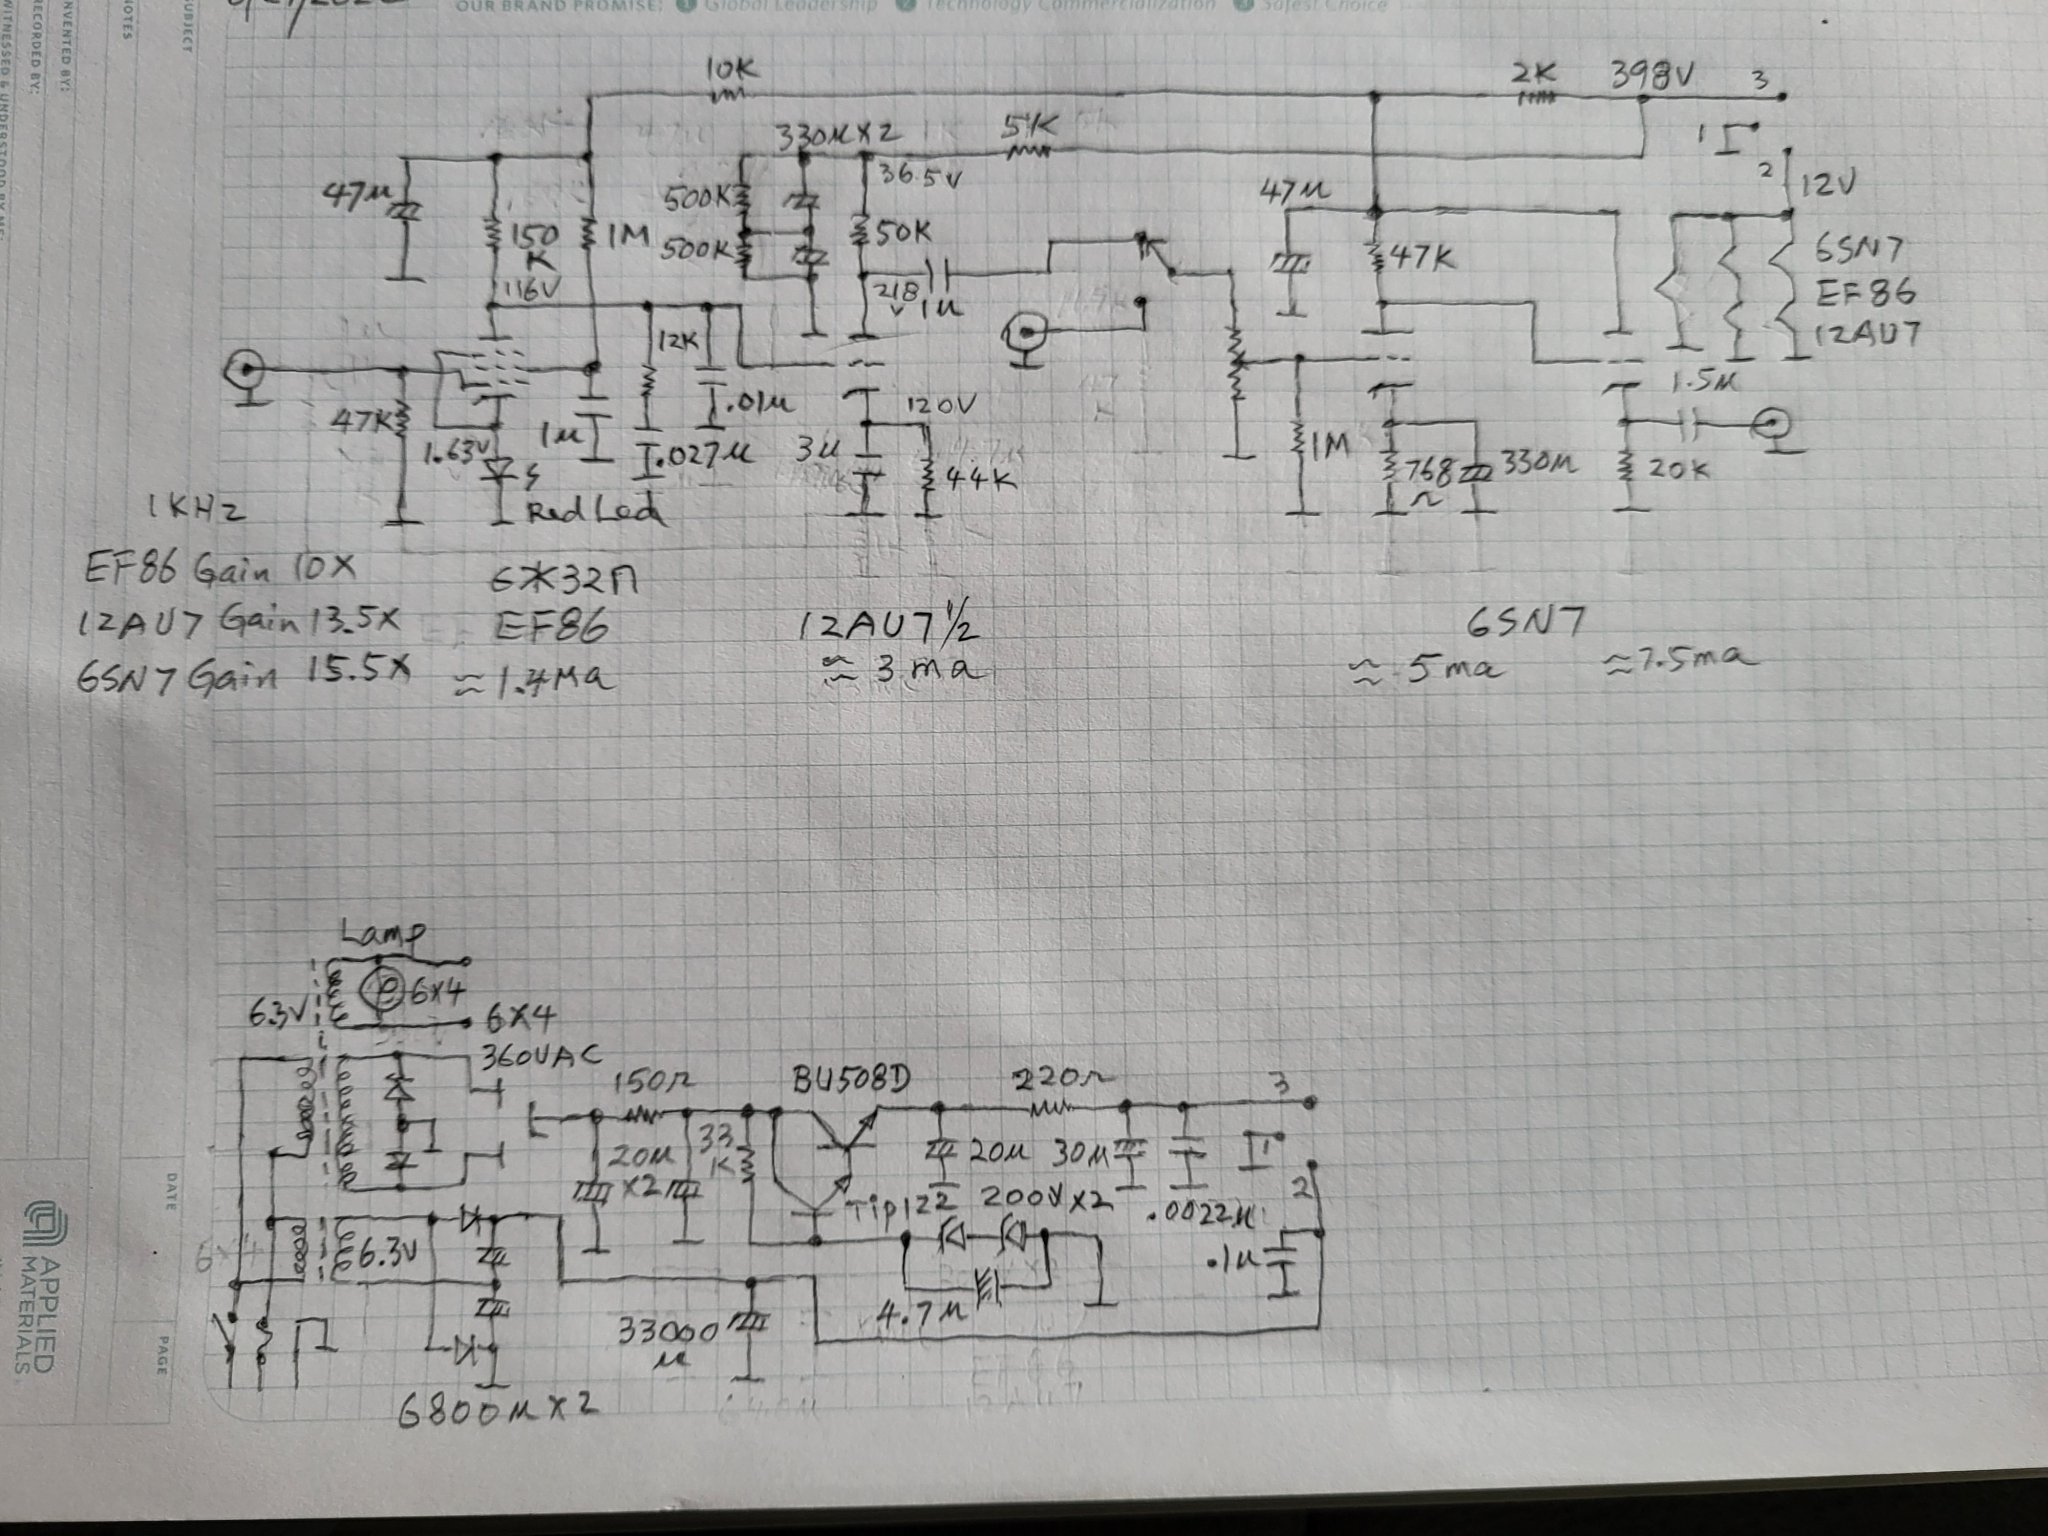 OUR BRAND PROMISE: 1 Global Leadership 2 Technology Commercialization 3 Safest Choice
SUBJECT
NOTES
INVENTED BY:
RECORDED BY:
WITNESSED & UNDERSTOOD BY ME:
10K
2K 398V 3
330µX2
51K
1
36.5V
2
12V
47µ
500K
150K
1M
500K
50K
47µ
47K
6SN7
EF86
12AU7
116V
218V
1µ
12K
.01µ
1.5M
47K
1.63V
1µ
.027µ
3µ
120V
44K
1M
768Ω
330M
20K
Red Led
1KHz
EF86 Gain 10X
12AU7 Gain 13.5X
6SN7 Gain 15.5X
6Ж32П
EF86
≈1.4Ma
12AU7 1/2
≈ 3 ma
6SN7
≈ 5 ma ≈7.5ma
Lamp
6X4
6.3V
6X4
360VAC
150Ω
BU508D
220Ω
3
20M X2
33K
20M
30M
1
Tip122
200VX2
.0022µ
2
6.3V
.1µ
4.7M
33000µ
6800MX2
DATE
PAGE
APPLIED
MATERIALS